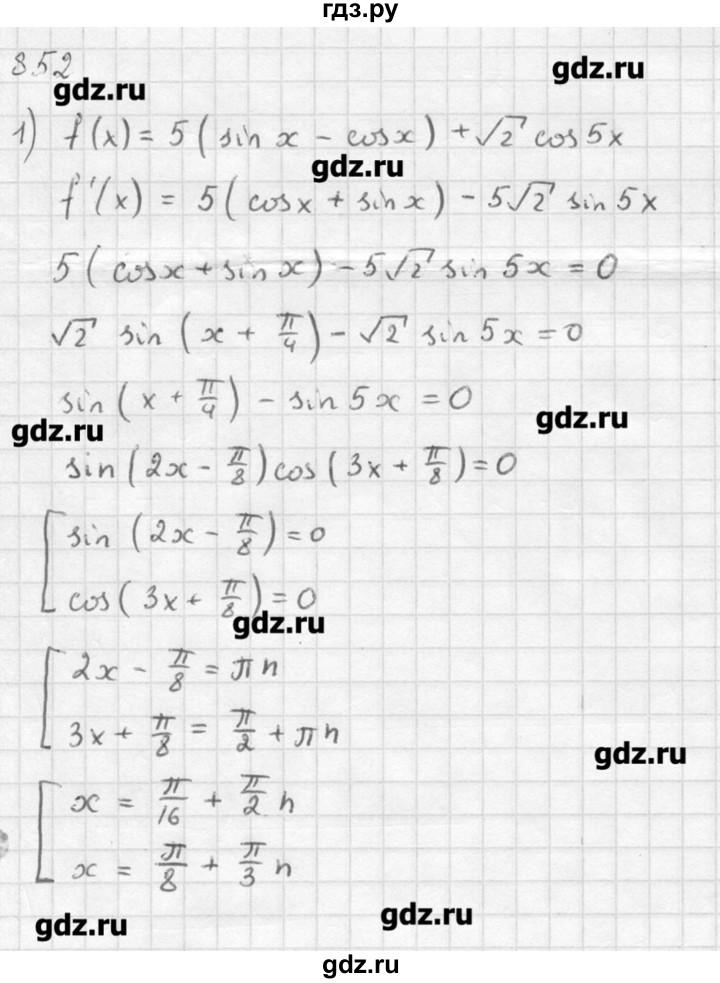 гдз.ру
852
gdz.ru
gdz.ru
1) f(x) = 5(sin x - cos x) + √2 cos 5x
gdz.ru
f'(x) = 5(cos x + sin x) - 5√2 sin 5x
5(cos x + sin x) - 5√2 sin 5x = 0
√2 sin (x + π/4) - √2 sin 5x = 0
sin (x + π/4) - sin 5x = 0
gdz.ru
gdz.ru
sin (2x - π/8) cos (3x + π/8) = 0
[ sin (2x - π/8) = 0
cos (3x + π/8) = 0
gdz.ru
[ 2x - π/8 = πn
3x + π/8 = π/2 + πn
gdz.ru
[ x = π/16 + π/2 n
x = π/8 + π/3 n
gdz.ru
gdz.ru
gdz.ru